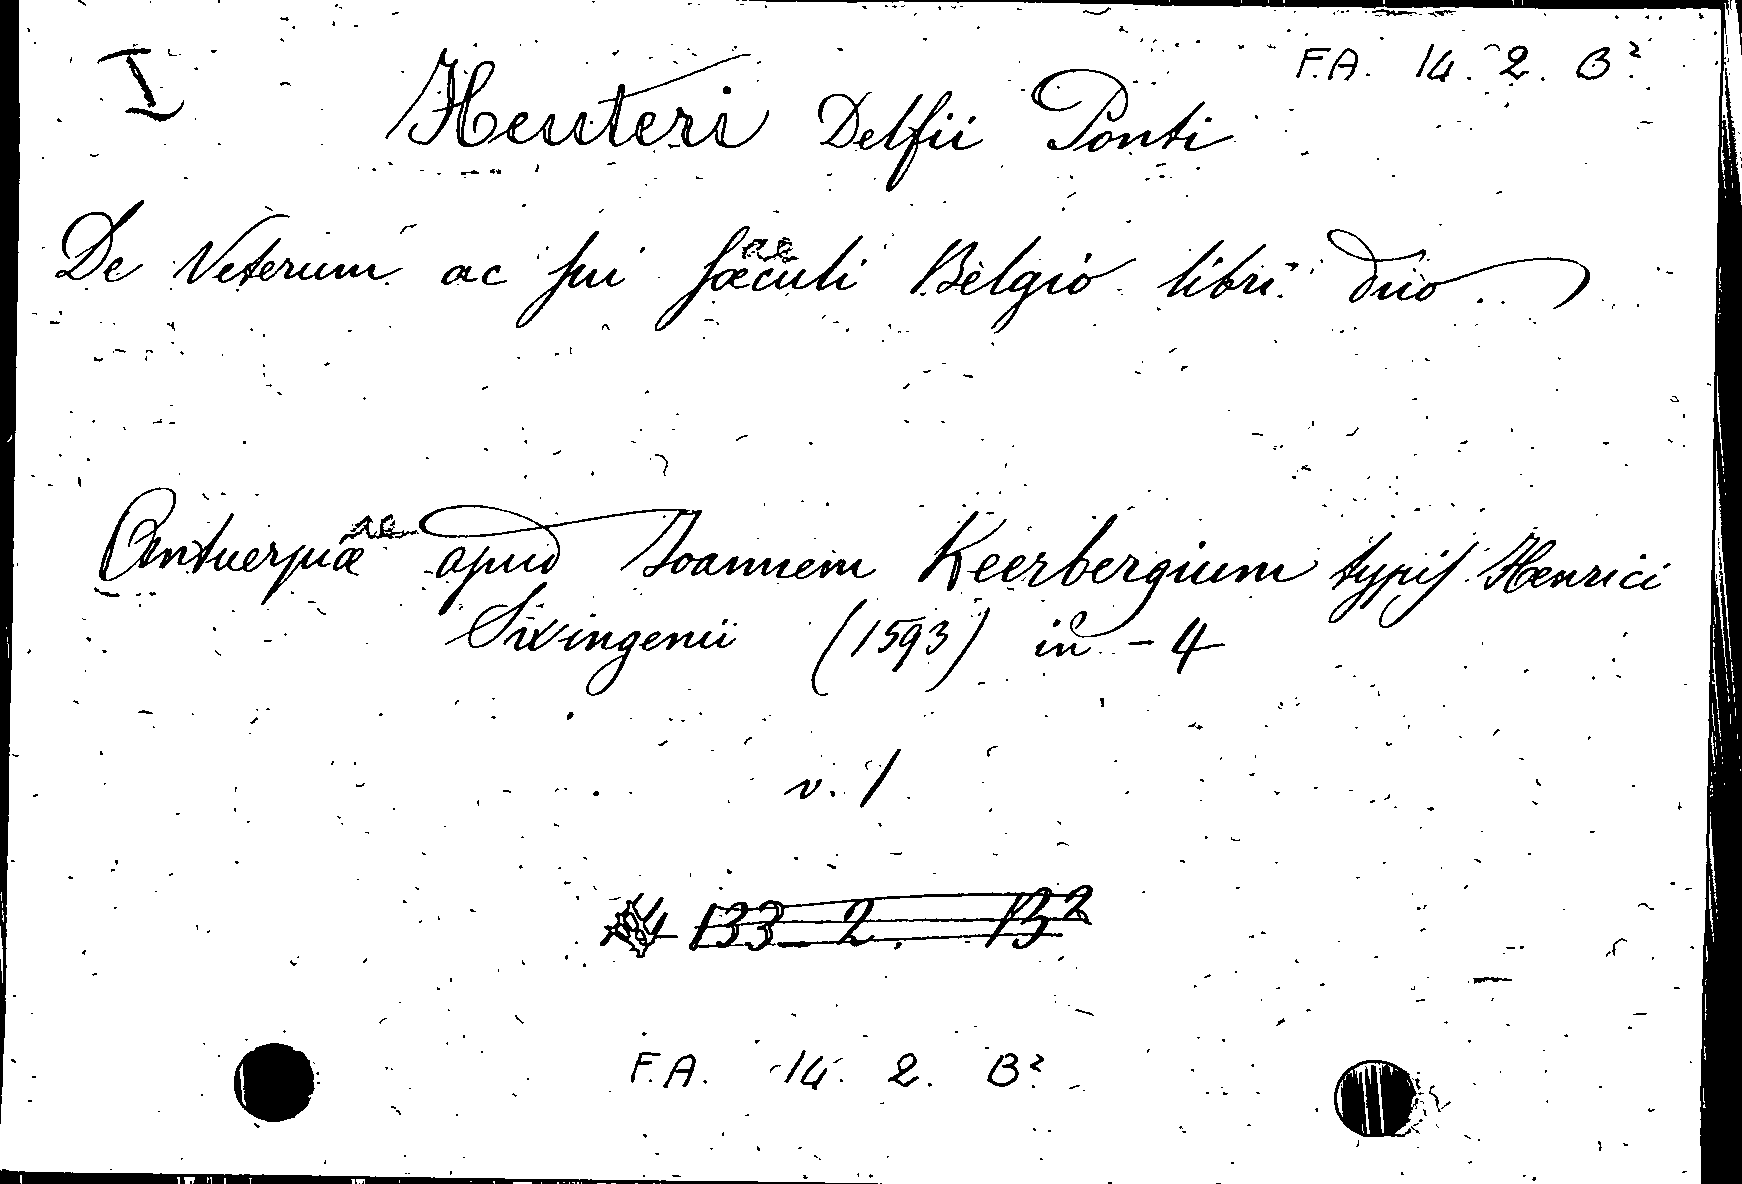 I
F.A. 14. 2. B²
Heuteri Delfii Ponti
De Veterum ac sui sæculi Belgio libri duo.
ae
Antuerpiæ apud Joannem Keerbergium typis Henrici
ae
Sivingenii (1593) in-4
v. 1
133-2. B²
F.A. 14. 2. B²